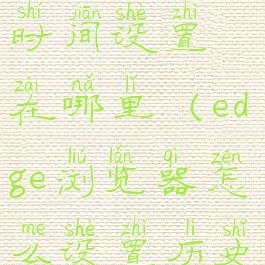 shí jiān shè zhì
时间设置
zài nǎ lǐ
在哪里（ed
liú lǎn qì zěn
ge浏览器怎
me shè zhì lì shǐ
么设置历史